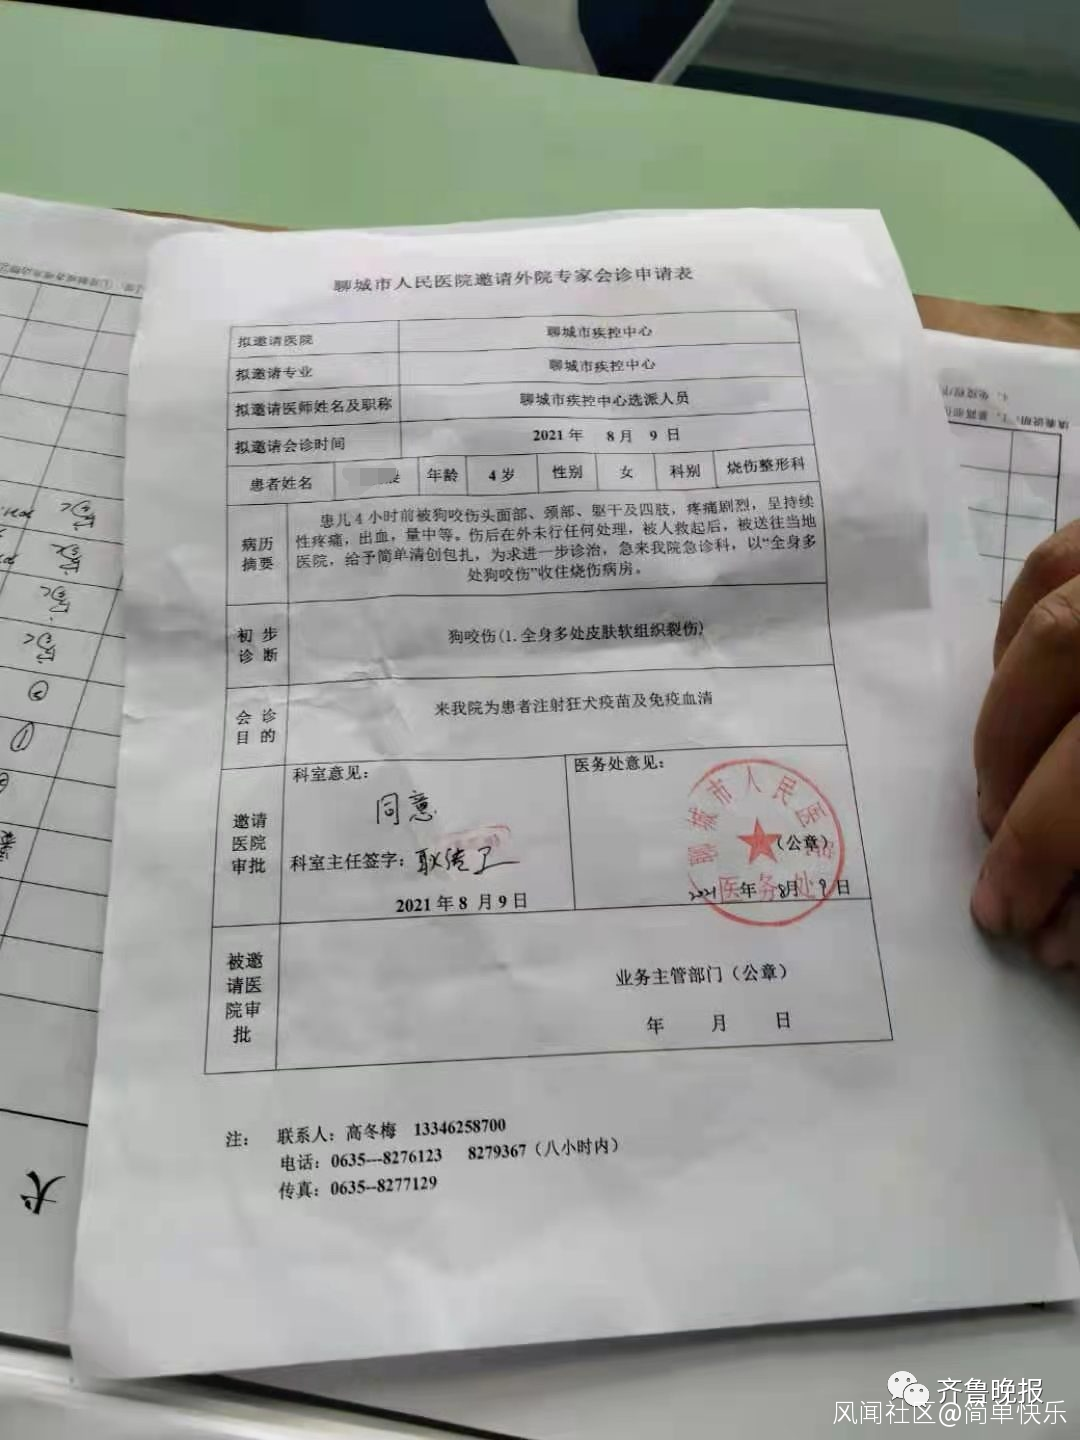 聊城市人民医院邀请外院专家会诊申请表
拟邀请医院 聊城市疾控中心
拟邀请专业 聊城市疾控中心
拟邀请医师姓名及职称 聊城市疾控中心选派人员
拟邀请会诊时间 2021 年 8 月 9 日
患者姓名 年龄 4 岁 性别 女 科别 烧伤整形科
病历摘要
患儿 4 小时前被狗咬伤头面部、颈部、躯干及四肢，疼痛剧烈，呈持续
性疼痛，出血，量中等。伤后在外未行任何处理，被人救起后，被送往当地
医院，给予简单清创包扎，为求进一步诊治，急来我院急诊科，以“全身多
处狗咬伤”收住烧伤病房。
初步诊断 狗咬伤(1.全身多处皮肤软组织裂伤)
会诊目的 来我院为患者注射狂犬疫苗及免疫血清
邀请医院审批
科室意见：
同意
科室主任签字：
2021 年 8 月 9 日
医务处意见：
聊城市人民医院
医务处
（公章）
2021 年 8 月 9 日
被邀请医院审批
业务主管部门（公章）
年 月 日
注： 联系人：高冬梅 13346258700
电话：0635---8276123 8279367（八小时内）
传真：0635--8277129
犬
齐鲁晚报
风闻社区@简单快乐